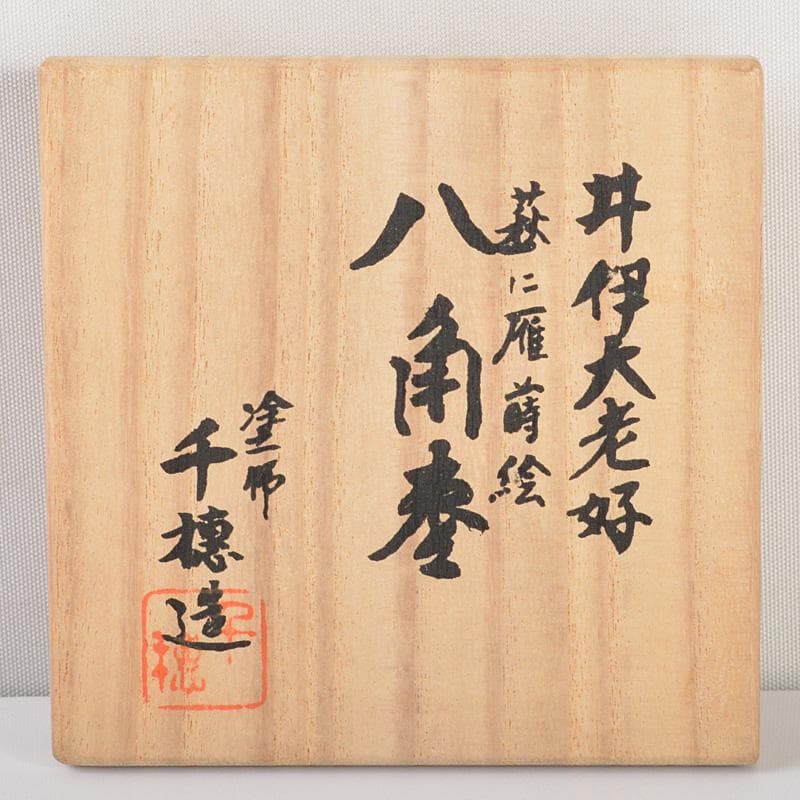 井伊大老好
萩に雁蒔絵
八角棗
塗師
千穂造
千穂